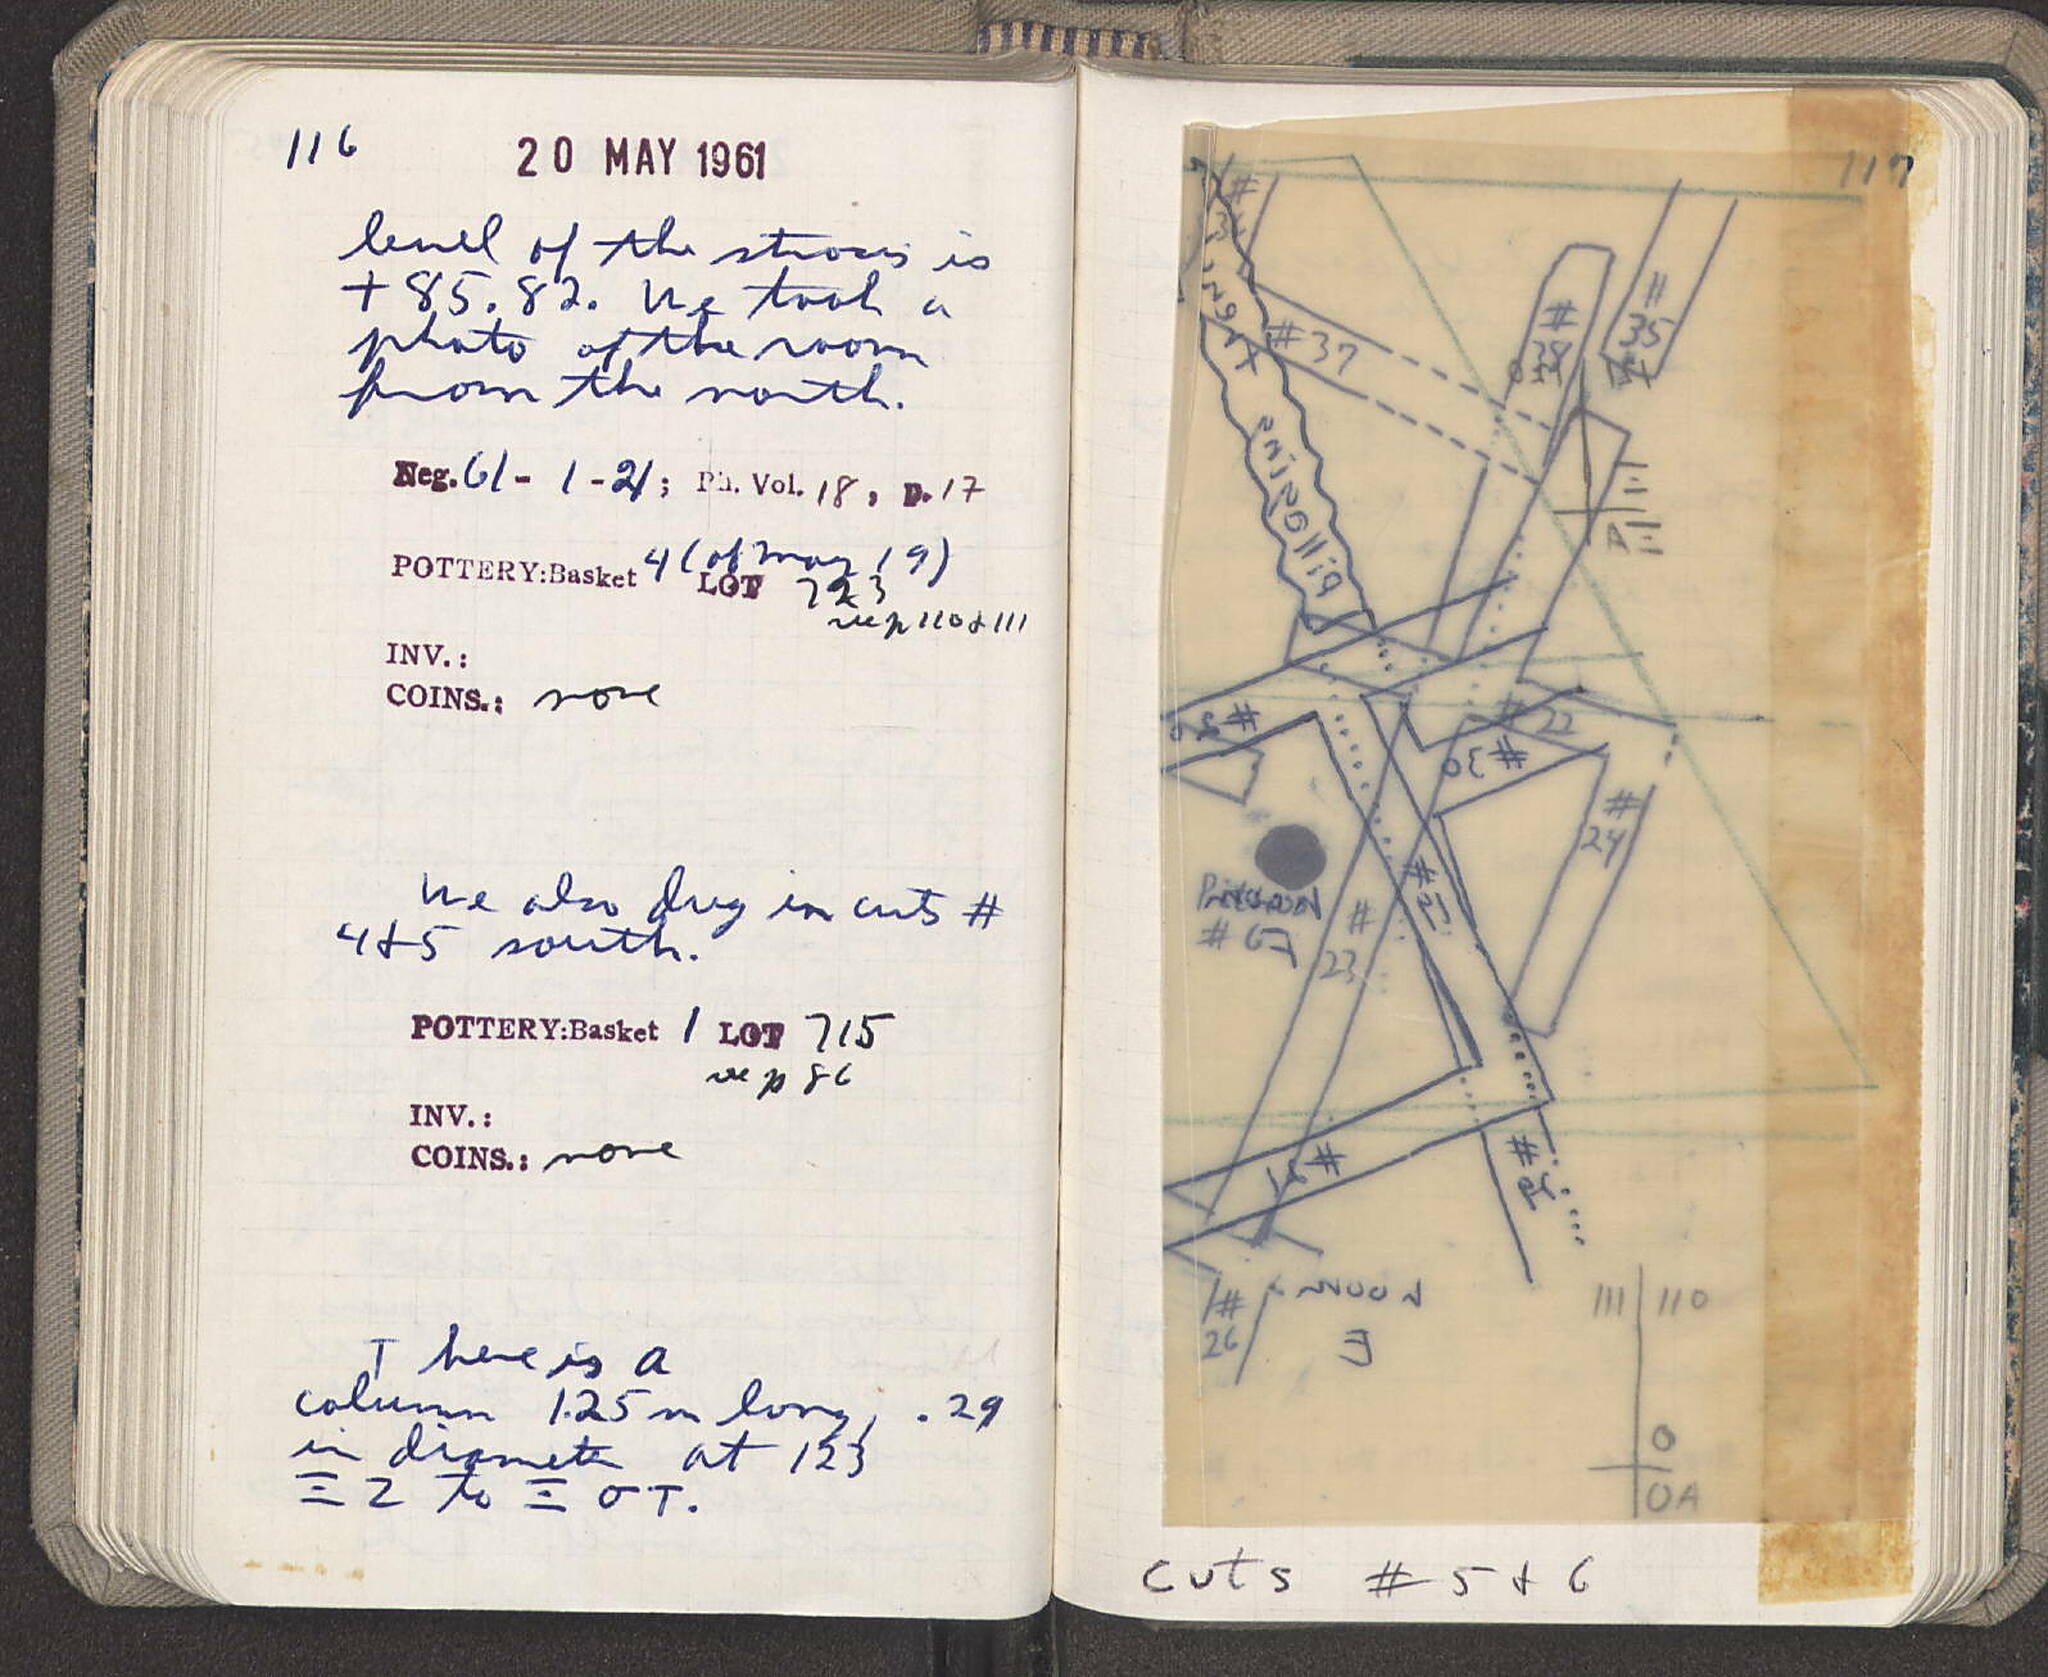 116
20 MAY 1961
level of the strosis is
+85.82. We took a
photo of the room
from the north.
Neg. 61 - 1 - 21; Ph. Vol. 18, p. 17
POTTERY:Basket 4 (of May 19)
LOT 723
see p 110 & 111
INV.:
COINS.: none
We also dug in cuts #
4 & 5 south.
POTTERY:Basket 1 LOT 715
see p 86
INV.:
COINS.: none
There is a
column 1.25 m long, .29
in diameter at 123
Ξ Z to Ξ OT.
117
#37
#
38
35
#22
# 30
#
24
#
23
# 67
#
26
Room
E
111 110
O
OA
Cuts # 5 & 6